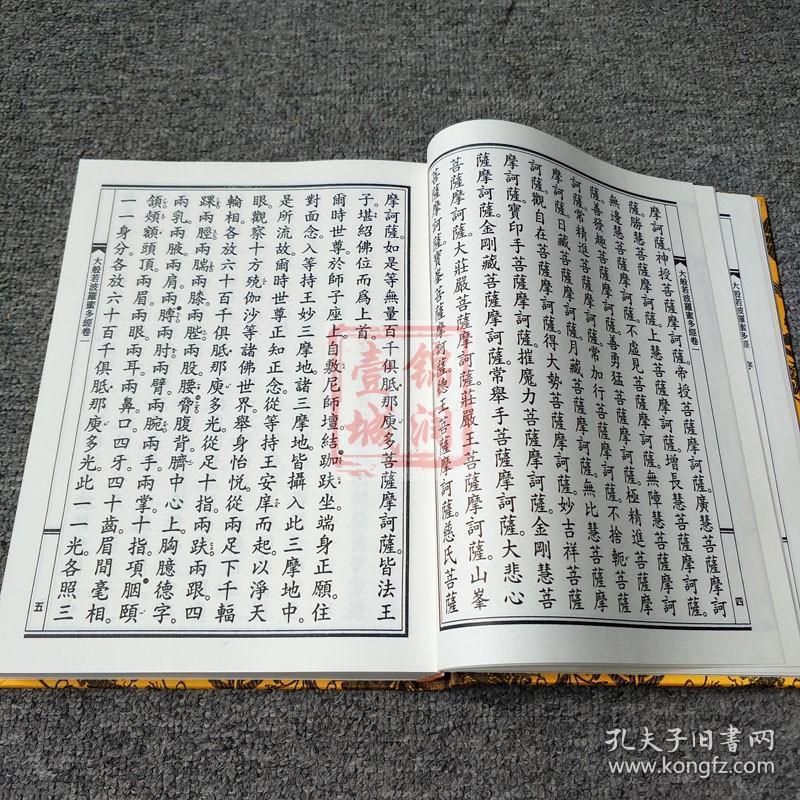 大般若波羅蜜多經 序
大般若波羅蜜多經卷一
四
摩訶薩神授菩薩摩訶薩。帝授菩薩摩訶薩。廣慧菩薩摩訶
薩勝慧菩薩摩訶薩。上慧菩薩摩訶薩。增長慧菩薩摩訶薩。
無邊慧菩薩摩訶薩。不虛見菩薩摩訶薩無障慧菩薩摩訶
薩善發趣菩薩摩訶薩。善勇猛菩薩摩訶薩。極精進菩薩摩訶
薩常精進菩薩摩訶薩常加行菩薩摩訶薩不捨軛菩薩
摩訶薩。日藏菩薩摩訶薩。月藏菩薩摩訶薩。無比慧菩薩摩
訶薩。觀自在菩薩摩訶薩得大勢菩薩摩訶薩妙吉祥菩薩
摩訶薩。寶印手菩薩摩訶薩。摧魔力菩薩摩訶薩。金剛慧菩
薩摩訶薩。金剛藏菩薩摩訶薩。常舉手菩薩摩訶薩。大悲心
菩薩摩訶薩。大莊嚴菩薩摩訶薩。莊嚴王菩薩摩訶薩。山峯
菩薩摩訶薩。寶峯菩薩摩訶薩。德王菩薩摩訶薩。慈氏菩薩
摩訶薩。如是等無量百千俱胝那庾多菩薩摩訶薩。皆法王
子堪紹佛位而爲上首。
爾時世尊於師子座上自敷尼師壇結跏趺坐端身正願。住
對面念入等持王妙三摩地。諸三摩地皆攝入此三摩地中。
是所流故爾時世尊正知正念從等持王安庠而起以淨天
眼觀察十方殑伽沙等諸佛世界。舉身怡悅從兩足下千輻
輪相各放六十百千俱胝那庾多光從足十指兩趺兩跟。四
踝兩脛兩腨兩膝兩䏶兩股腰脅腹背臍中心上胸臆德字。
兩乳兩腋兩肩兩膊兩肘兩臂兩腕兩手兩掌十指項胭頤
頷頰額頭頂兩眉兩眼。兩耳兩鼻口四牙四十齒。眉間毫相。
一一身分各放六十百千俱胝那庾多光。此一一光各照三
大般若波羅蜜多經卷一
五
壹城
孔夫子旧書网
www.kongfz.com